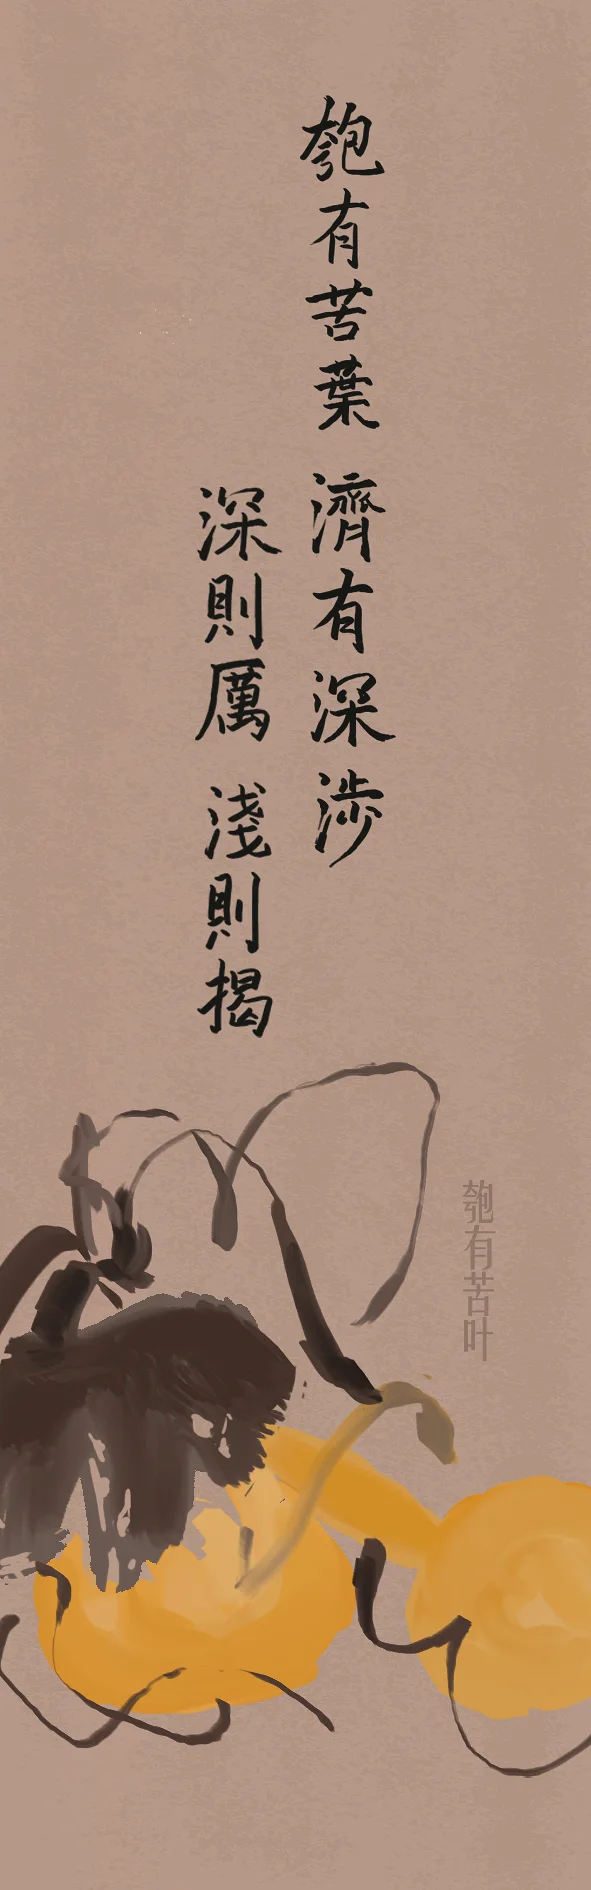 匏有苦葉 濟有深涉
深則厲 淺則揭
匏有苦叶